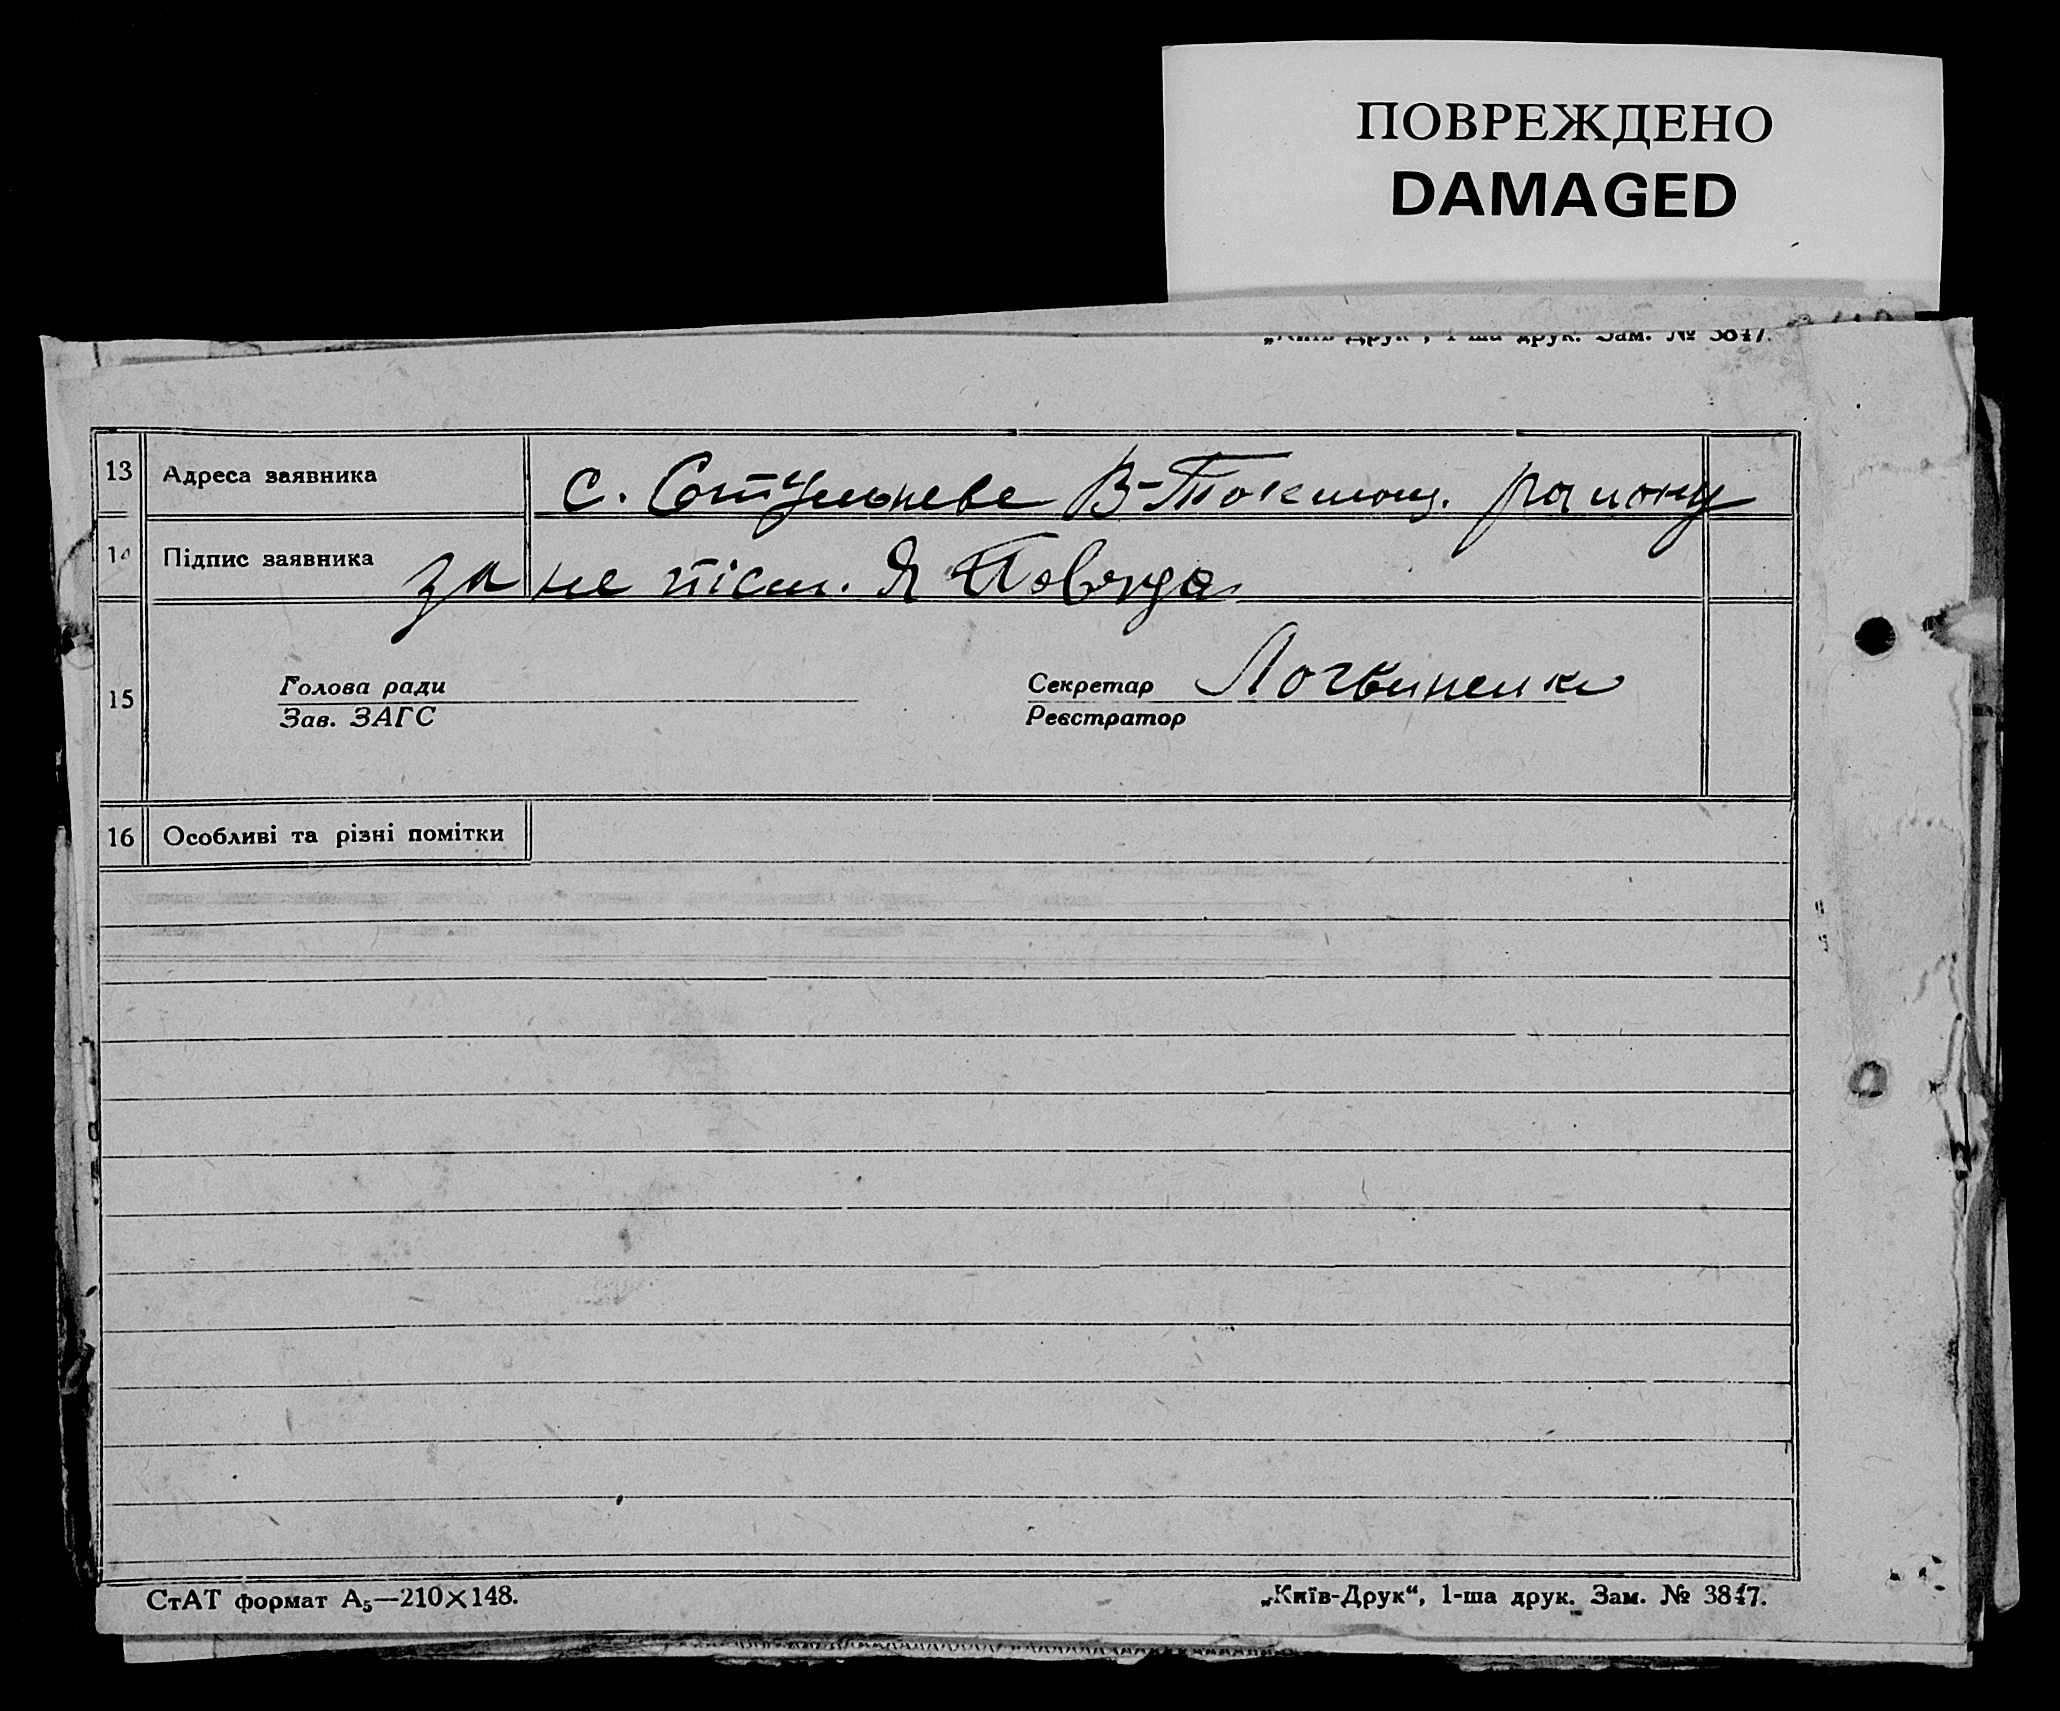 ПОВРЕЖДЕНО
DAMAGED
„Київ-Друк“, 1-ша друк. Зам. № 3847.
13 Адреса заявника с. В-Токмац. району
14 Підпис заявника за не пісм. Я
Голова ради Секретар Логвиненко
15
Зав. ЗАГС Реєстратор
16 Особливі та різні помітки
СтАТ формат А₅—210×148. „Київ-Друк“, 1-ша друк. Зам. № 3847.